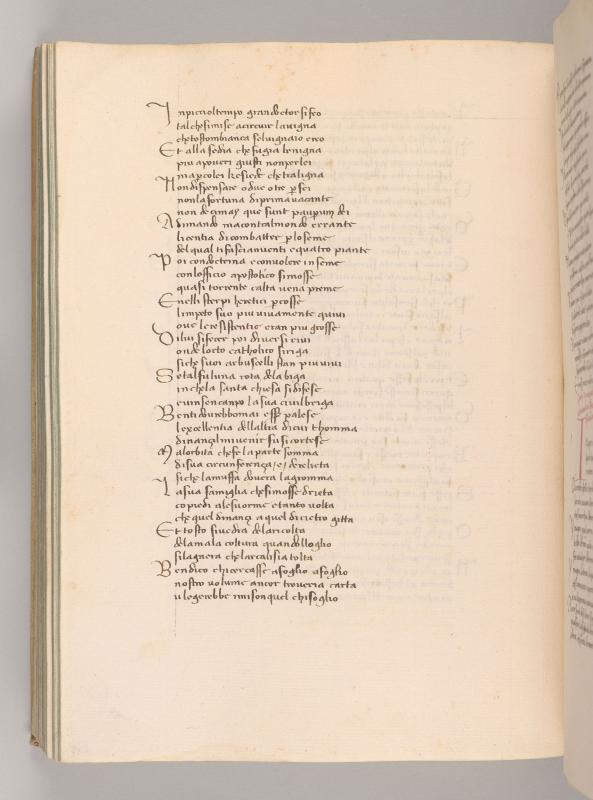 In piccioltempo grandoctor sifeo
talchesimise acircuir lauigna
chetostombianca seluignaio ereo
Et alla sedia chefugia benigna
piu apoueri giusti nonperlei
ma per colei chesiede chetraligna
Non dispensare odue otre per sei
nonlafortuna diprima uacante
non decimas que sunt pauperum dei
Adimando macontralmondo errante
licentia dicombatter per loseme
delqual tifasciauenti equatro piante
Poi condoctrina econuolere inseme
conlofficio apostolico simosse
quasi torrente calta uena preme
Enelli sterpi heretici percosse
limpeto suo piu uiuamente quiui
oue leresistentie eran piu grosse
Dilui sifecer poi diuersi riui
ondelorto catholico siriga
siche suoi arbuscelli stan piu uiui
Se tal fu luna rota dela biga
inchela santa chiesa sidifese
euinsencanpo lasua ciuilbriga
Ben tidourebbomai esser palese
lexcellentia dellaltra dicui thomma
dinançalmiuenir fu sicortese
Malorbita chefe laparte somma
disua circunferença e derelicta
siche lamuffa douera lagromma
La sua famiglia chesimosse drieta
copiedi alesuorme etanto uolta
che quel dinançi a quel dirietro gitta
Et tosto siuedra delaricolta
delamala coltura quandolloglio
silagnera chelarcalisia tolta
Ben dico chicercasse afoglio afoglio
nostro uolume ancor troueria carta
u legerebbe imisonquel chisoglio